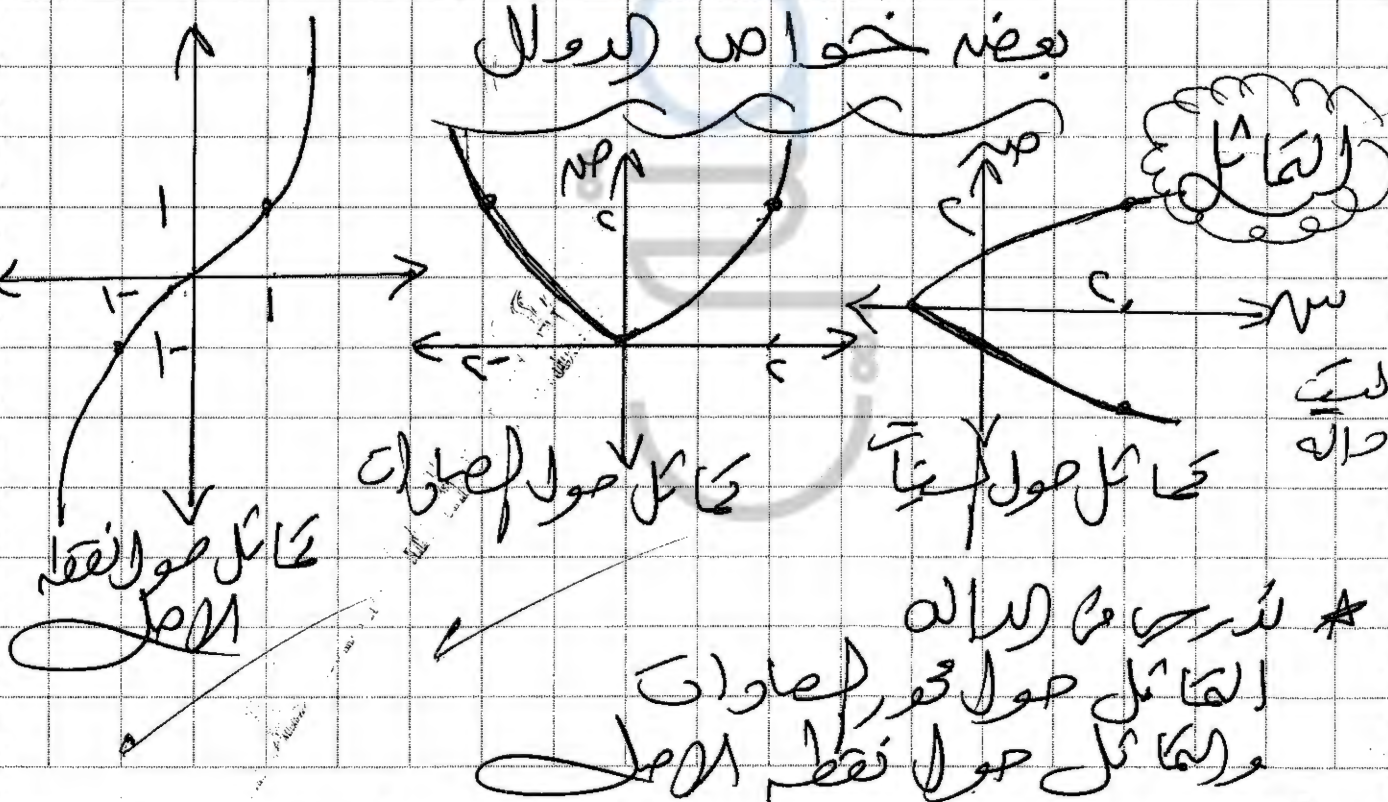 بعض خواص الدوال
التماثل
ص
٢
٢
س
ليست
دالة
تماثل حول السينات
ص
٢
٢-
٢
تماثل حول الصادات
١
١-
١
١-
تماثل حول نقطة
الأصل
* ندرس من الدالة
التماثل حول محور الصادات
والتماثل حول نقطة الأصل